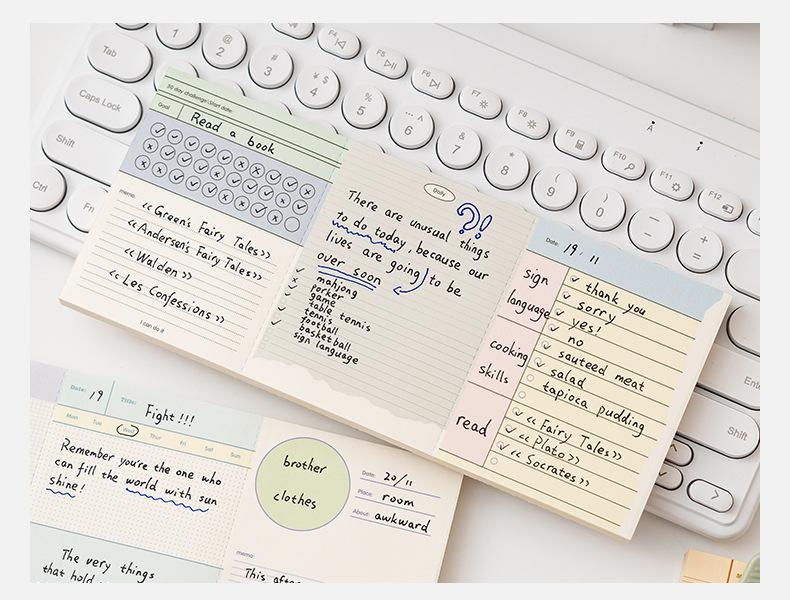 Tab
Caps Lock
Shift
Ctrl
Fn
1
@
2
#
3
¥ $
4
%
5
^
6
&
7
*
8
(
9
)
0
—
+
=
F4
F5
F6
F7
F8
F9
F10
F11
F12
A
Shift
30 day challenge/Start date:
Goal
Read a book
memo:
《Green's Fairy Tales》
《Andersen's Fairy Tales》
《Walden》
《Les Confessions》
I can do it
Daily
There are unusual things
to do today, because our
lives are going to be
over soon
?!
mahjong
porker
game
table tennis
tennis
football
basketball
sign language
Date:
19. 11
sign
language
thank you
sorry
yes!
no
cooking
skills
sauteed meat
salad
tapioca pudding
read
《Fairy Tales》
《Plato》
《Socrates》
Date:
19
Title:
Fight!!!
Mon
Tue
Wed
Thur
Fri
Sat
Sun
Remember you're the one who
can fill the world with sun
shine!
The very things
that hold
brother
clothes
Date: 20/11
Place: room
About: awkward
memo:
This